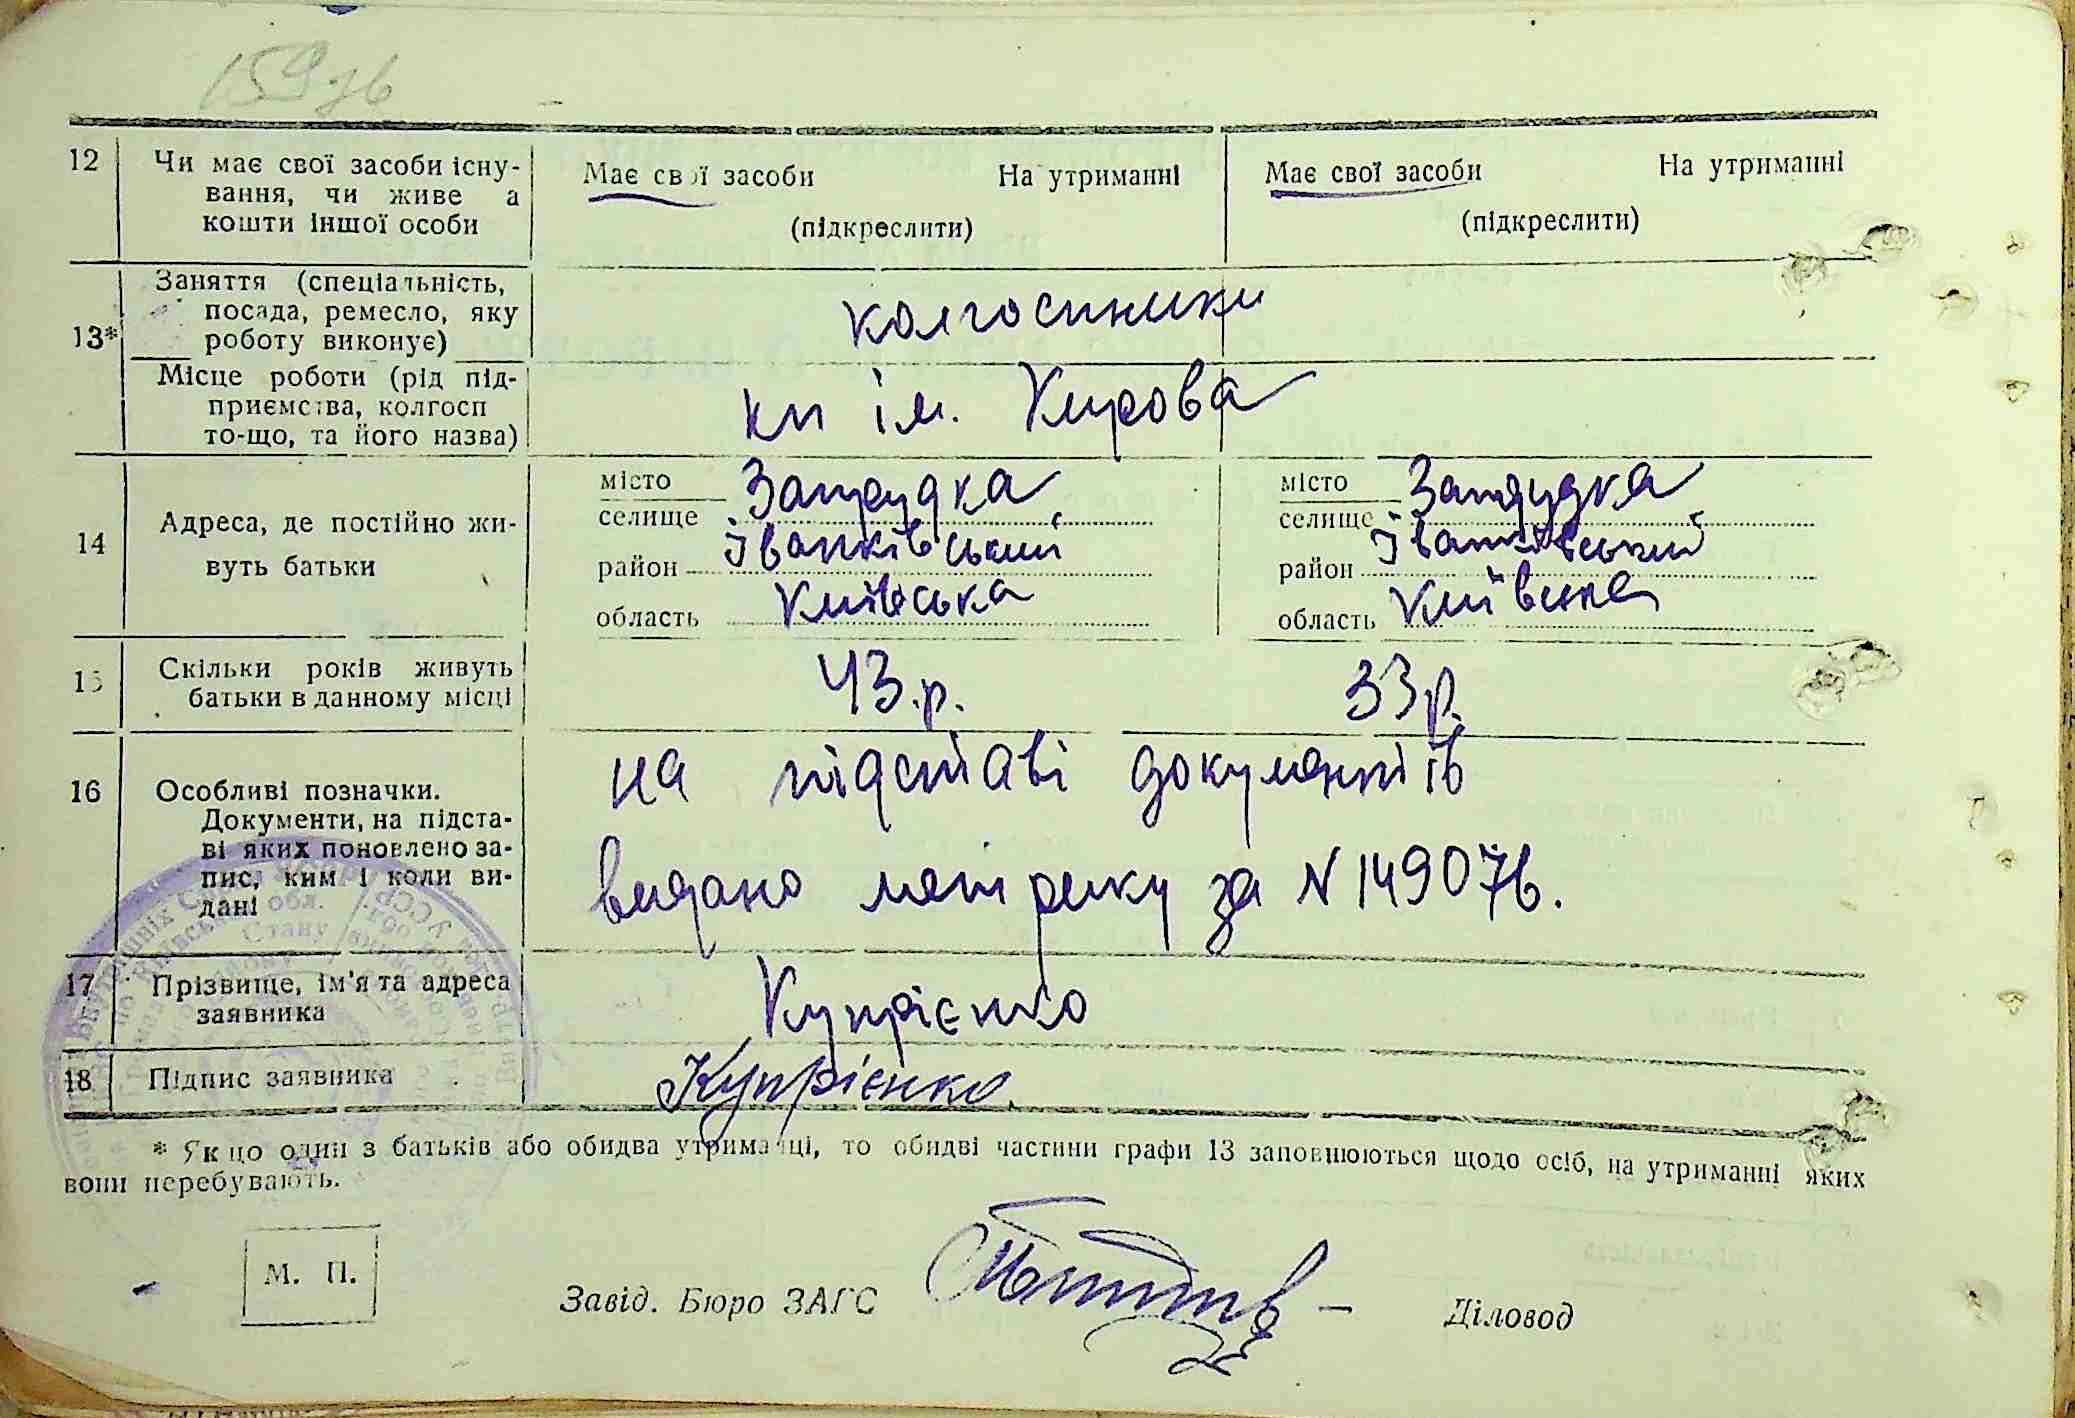 159зв
12 Чи має свої засоби існу-
вання, чи живе а
кошти іншої особи
Має свої засоби На утриманні
(підкреслити)
Має свої засоби На утриманні
(підкреслити)
13*
Заняття (спеціальність,
посада, ремесло, яку
роботу виконує)
колгоспники
Місце роботи (рід під-
приємства, колгосп
то-що, та його назва)
кп ім. Кирова
14 Адреса, де постійно жи-
вуть батьки
місто
селище Запрудка
район Іванківський
область Київська
місто
селище Запрудка
район Іванківський
область Київська
15 Скільки років живуть
батьки в данному місці
43.р.
33р.
16 Особливі позначки.
Документи, на підста-
ві яких поновлено за-
пис, ким і коли ви-
дані
на підставі документів
видано метрику за N 149076.
17 Прізвище, ім'я та адреса
заявника
Купрієнко
18 Підпис заявника
Купрієнко.
* Якщо один з батьків або обидва утриманці, то обидві частини графи 13 заповнюються щодо осіб, на утриманні яких
вони перебувають.
М. П.
Завід. Бюро ЗАГС
Діловод